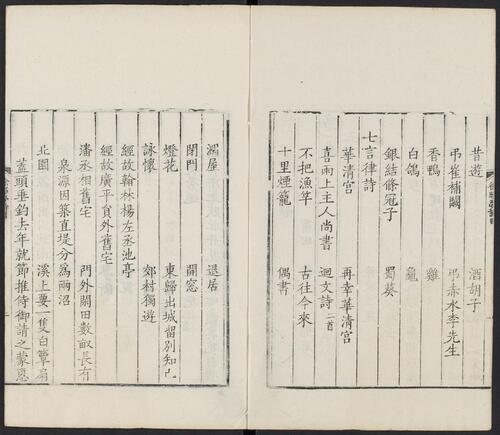 昔遊 酒胡子
弔崔補闕 弔赤水李先生
香鴨 雞
白鴿 龜
銀結條冠子 蜀葵
七言律詩
華清宮 再幸華清宮
喜雨上主人尚書 迴文詩二首
不把漁竿 古往今來
十里煙籠 偶書
潤屋 退居
閉門 開窓
燈花 東歸出城留別知己
詠懷 郊村獨遊
經故翰林楊左丞池亭
經故廣平員外舊宅
潘丞相舊宅 門外閑田數畝長有
泉源因築直堤分為兩沼
北園 溪上要一隻白簟扇
蓋頭垂釣去年就節推侍御請之蒙恩